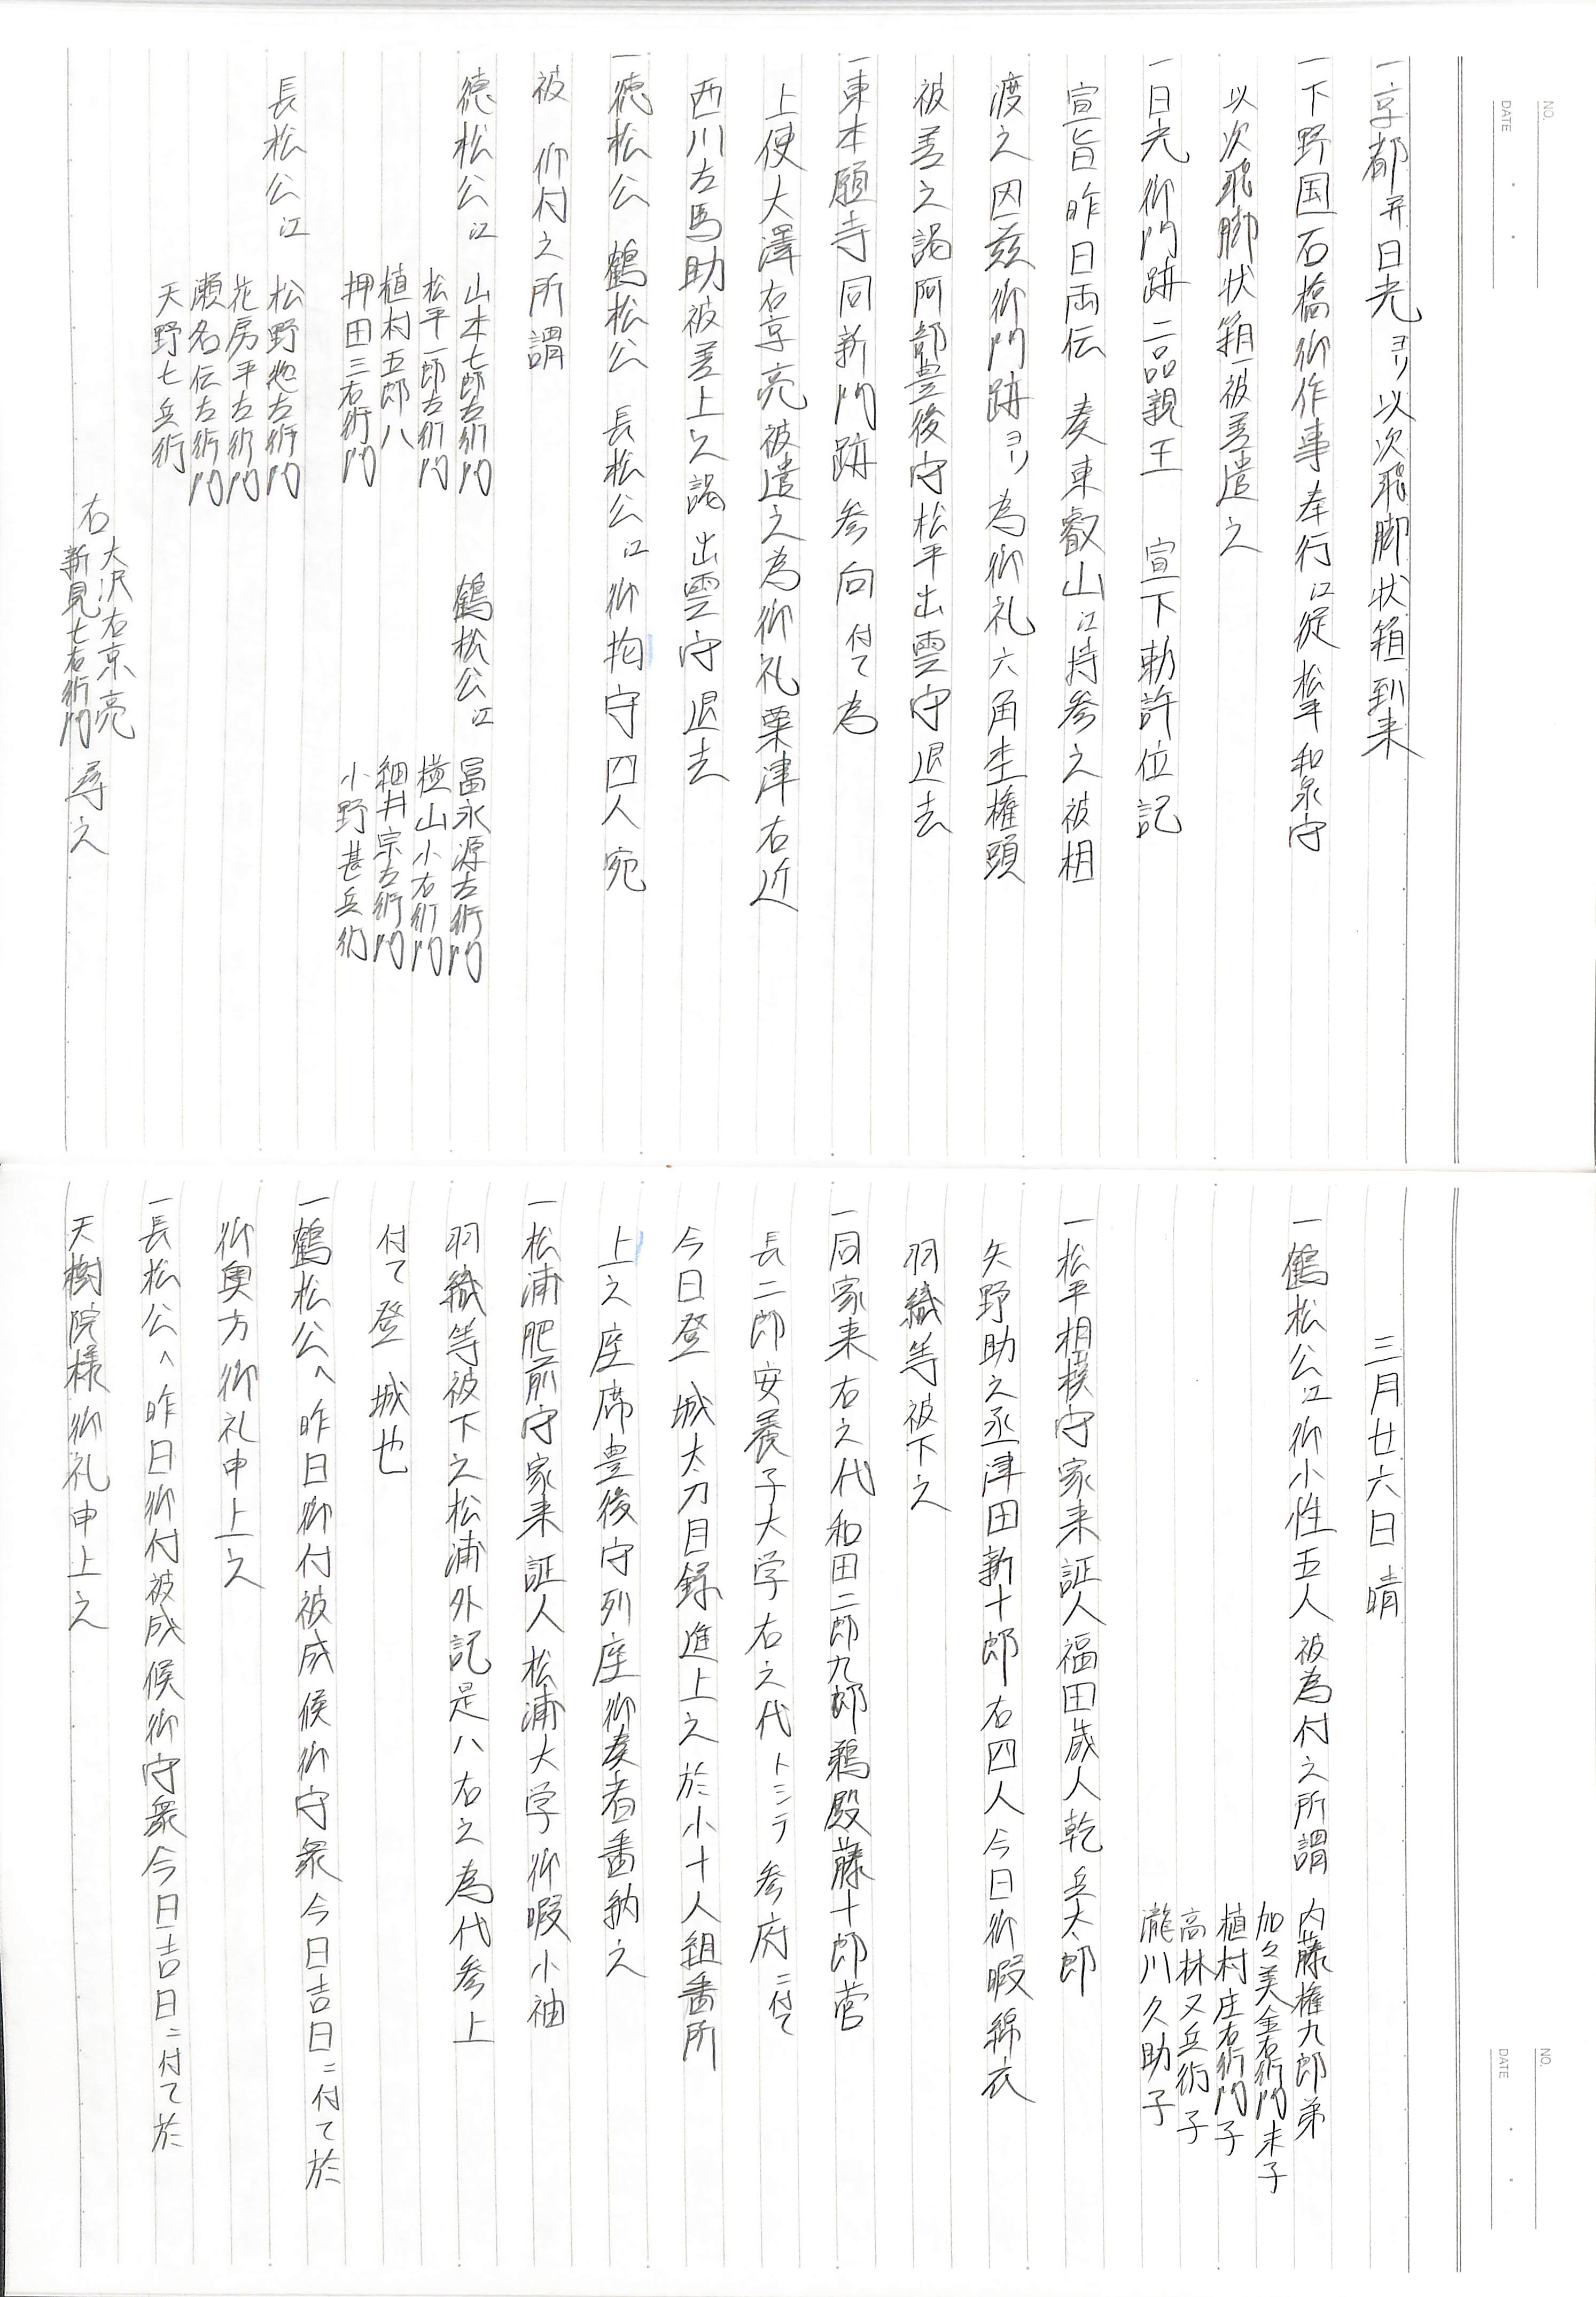 NO.
DATE
一京都并日光ヨリ以次飛脚状箱到来
一下野国石橋御作事奉行江従松平和泉守
以次飛脚状箱一被差遣之
一日光御門跡二品親王 宣下勅許位記
宣旨昨日両伝 奏東叡山江持参之被相
渡之因茲御門跡ヨリ為御礼六角杢権頭
被差之謁阿部豊後守松平出雲守退去
一東本願寺同新門跡参向付て為
上使大澤右京亮被遣之為御礼粟津右近
西川左馬助被差上之謁出雲守退去
一徳松公 鶴松公 長松公江御抱守四人宛
被 仰付之所謂
徳松公江 山本七郎左衛門
松平一郎左衛門
植村五郎八
押田三右衛門
鶴松公江 冨永源左衛門
横山小右衛門
細井宗左衛門
小野甚兵衛
長松公江 松野惣左衛門
花房平左衛門
瀬名伝左衛門
天野七兵衛
右 大沢右京亮
新見七右衛門 尋之
NO.
DATE
三月廿六日 晴
一鶴松公江御小性五人被為付之所謂 内藤権九郎弟
加々美金右衛門末子
植村庄右衛門子
高林又兵衛子
瀧川久助子
一松平相模守家来証人福田歳人乾兵太郎
矢野助之丞津田新十郎右四人今日御暇綿衣
羽織等被下之
一同家来右之代和田二郎九郎鵜殿藤十郎菅
長二郎安養子大学右之代トシテ参府ニ付て
今日登 城太刀目録進上之於小十人組番所
上之座席豊後守列座御奏者番納之
一松浦肥前守家来証人松浦大学御暇小袖
羽織等被下之松浦外記是ハ右之為代参上
付て登 城也
一鶴松公へ昨日御付被成候御守衆今日吉日ニ付て於
御奥方御礼申上之
一長松公へ昨日御付被成候御守衆今日吉日ニ付て於
天樹院様御礼申上之